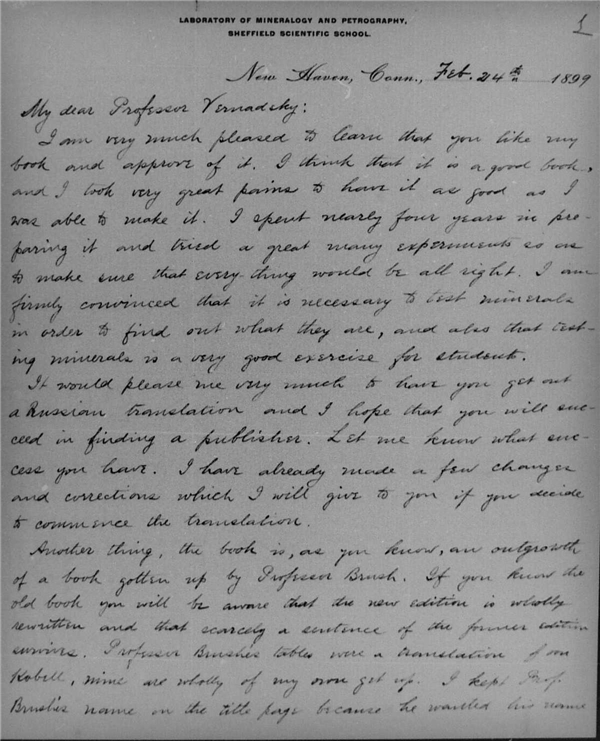 LABORATORY OF MINERALOGY AND PETROGRAPHY,
SHEFFIELD SCIENTIFIC SCHOOL.
1
New Haven, Conn., Feb. 24th 1899
My dear Professor Vernadsky:
I am very much pleased to learn that you like my
book and approve of it. I think that it is a good book,
and I took very great pains to have it as good as I
was able to make it. I spent nearly four years in pre-
paring it and tried a great many experiments so as
to make sure that every-thing would be all right. I am
firmly convinced that it is necessary to test minerals
in order to find out what they are, and also that test-
ing minerals is a very good exercise for student.
It would please me very much to have you get out
a Russian translation and I hope that you will suc-
ceed in finding a publisher. Let me know what suc-
cess you have. I have already made a few changes
and corrections which I will give to you if you decide
to commence the translation.
Another thing, the book is, as you know, an outgrowth
of a book gotten up by Professor Brush. If you know the
old book you will be aware that the new edition is wholly
rewritten and that scarcely a sentence of the former edition
survives. Professor Brush's tables were a translation of von
Kobell, mine are wholly of my own get up. I kept Prof.
Brush's name on the title page because he wanted his name